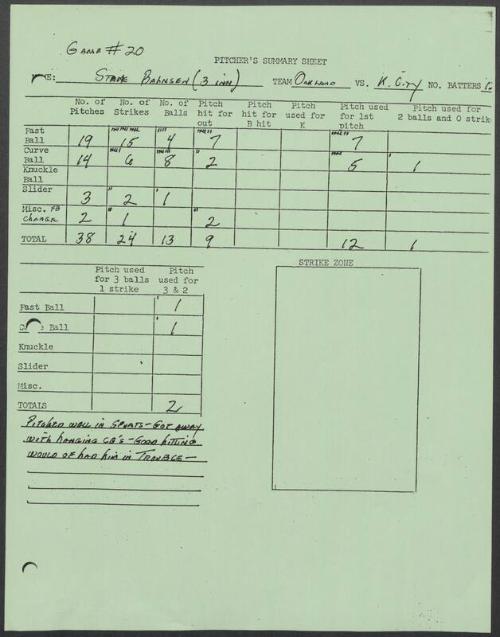 Game # 20
PITCHER'S SUMMARY SHEET
E: Stave Bahnsen (3 inn) TEAM Oakland VS. K. City NO. BATTERS
No. of Pitches No. of Strikes No. of Balls Pitch hit for out Pitch hit for B hit Pitch used for K Pitch used for 1st pitch Pitch used for 2 balls and 0 strike
Fast Ball 19 15 4 7 7
Curve Ball 14 6 8 2 5 1
Knuckle Ball
Slider 3 2 1
Misc. FB Change 2 1 2
TOTAL 38 24 13 9 12 1
Pitch used for 3 balls 1 strike Pitch used for 3 & 2
STRIKE ZONE
Fast Ball 1
C e Ball 1
Knuckle
Slider
Misc.
TOTALS 2
Pitched well in spurts - Got away
with hanging CB's - Good hitting
would of had him in Trouble -